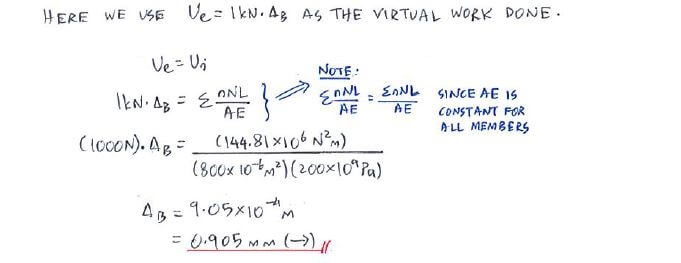 HERE WE USE Ue = 1kN·ΔB AS THE VIRTUAL WORK DONE.
Ue = Ui
NOTE:
1kN·ΔB = Σ nNL/AE } ⇒ Σ nNL/AE = ΣnNL/AE SINCE AE IS
CONSTANT FOR
ALL MEMBERS
(1000N)·ΔB = (144.81×10⁶ N²m)/(800×10⁻⁶m²)(200×10⁹Pa)
ΔB = 9.05×10⁻⁴ m
= 0.905 mm (→) //